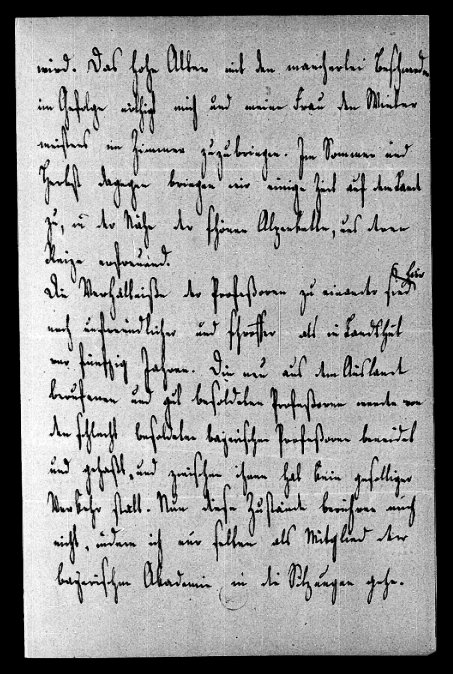 wird. Das hohe Alter mit den mancherlei Beschwerden
im Gefolge nöthigt mich und meine Frau den Winter
meistens im Zimmer zuzubringen. Im Sommer und
Herbst dagegen bringen wir einige Zeit auf dem Lande
zu, in der Nähe der schönen Alpenkette, uns deren
Reize erfreuend.
Die Verhältniße der Profeßoren zu einander sind hier
noch unfreundlicher und schroffer als in Landshut
vor fünfzig Jahren. Die neu aus dem Ausland
berufenen und gut besoldeten Profeßoren werden von
den schlecht besoldeten bayrischen Profeßoren beneidet
und gehaßt, und zwischen ihnen hat kein geselliger
Verkehr statt. Nun diese Zustände berühren mich
nicht, indem ich nur selten als Mitglied der
bayerischen Akademie in die Sitzungen gehe.